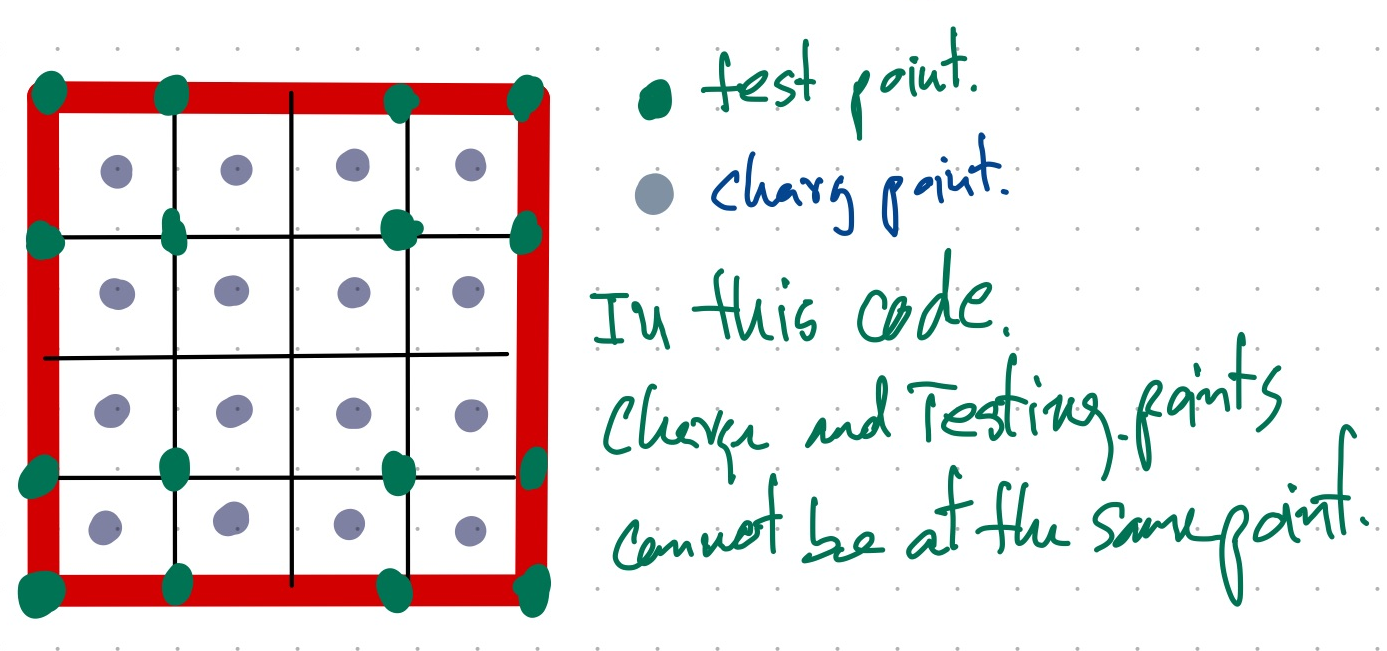 test point.
charg point.
In this code.
Charge and Testing points
cannot be at the same point.